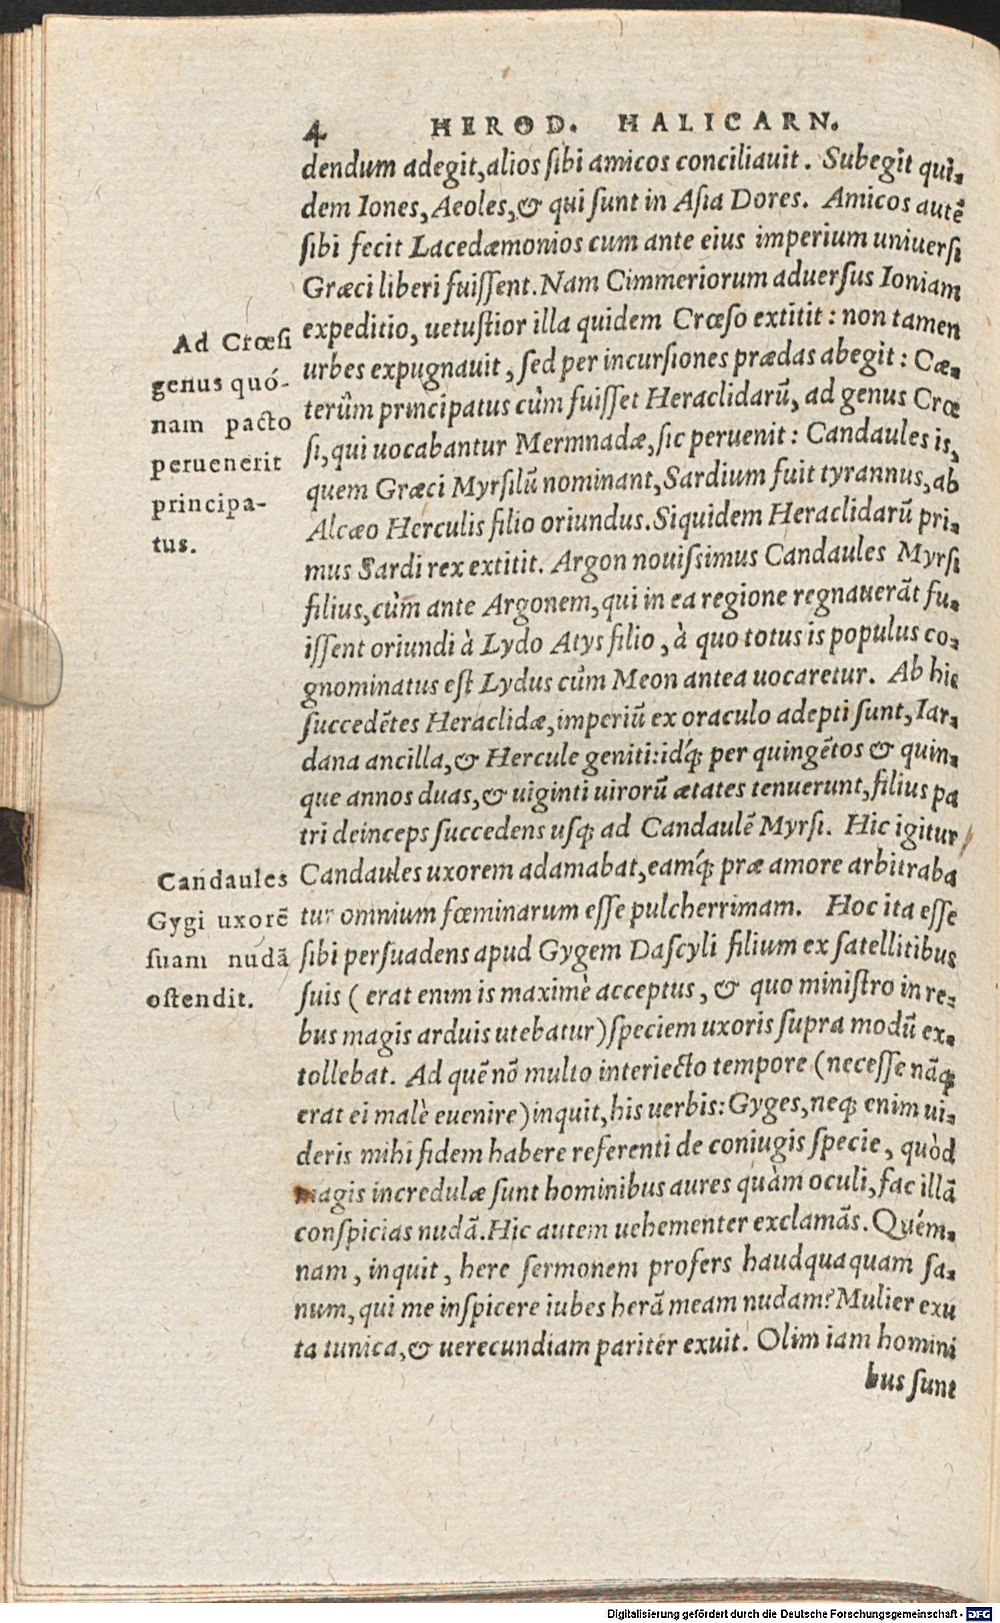 4 HEROD. HALICARN.
dendum adegit, alios sibi amicos conciliauit. Subegit qui-
dem Iones, Aeoles, & qui sunt in Asia Dores. Amicos autē
sibi fecit Lacedæmonios cum ante eius imperium uniuersi
Græci liberi fuissent. Nam Cimmeriorum aduersus Ioniam
expeditio, uetustior illa quidem Crœso extitit: non tamen
urbes expugnauit, sed per incursiones prædas abegit: Cæ-
terûm principatus cùm fuisset Heraclidarũ, ad genus Crœ
si, qui uocabantur Mermnadæ, sic peruenit: Candaules is,
quem Græci Myrsilũ nominant, Sardium fuit tyrannus, ab
Alcæo Herculis filio oriundus. Siquidem Heraclidarũ pri-
mus Sardi rex extitit. Argon nouissimus Candaules Myrsi
filius, cùm ante Argonem, qui in ea regione regnauerãt fu-
issent oriundi à Lydo Atys filio, à quo totus is populus co-
gnominatus est Lydus cùm Meon antea uocaretur. Ab his
succedẽtes Heraclidæ, imperiũ ex oraculo adepti sunt, Iar-
dana ancilla, & Hercule geniti: idq́; per quingẽtos & quin-
que annos duas, & uiginti uirorũ ætates tenuerunt, filius pa
tri deinceps succedens usq; ad Candaulẽ Myrsi. Hic igitur
Candaules uxorem adamabat, eamq́; præ amore arbitraba
tur omnium fœminarum esse pulcherrimam. Hoc ita esse
sibi persuadens apud Gygem Dascyli filium ex satellitibus
suis (erat enim is maximè acceptus, & quo ministro in re-
bus magis arduis utebatur) speciem uxoris supra modũ ex-
tollebat. Ad quẽ nõ multo interiecto tempore (necesse nãq;
erat ei malè euenire) inquit, his uerbis: Gyges, neq; enim ui-
deris mihi fidem habere referenti de coniugis specie, quòd
magis incredulæ sunt hominibus aures quàm oculi, fac illã
conspicias nudã. Hic autem uehementer exclamãs. Quém-
nam, inquit, here sermonem profers haudquaquam sa-
num, qui me inspicere iubes herã meam nudam? Mulier exu
ta tunica, & uerecundiam pariter exuit. Olim iam homini
bus sunt
Ad Crœsi
genus quó-
nam pacto
peruenerit
principa-
tus.
Candaules
Gygi uxorẽ
suam nudã
ostendit.
Digitalisierung gefördert durch die Deutsche Forschungsgemeinschaft - DFG